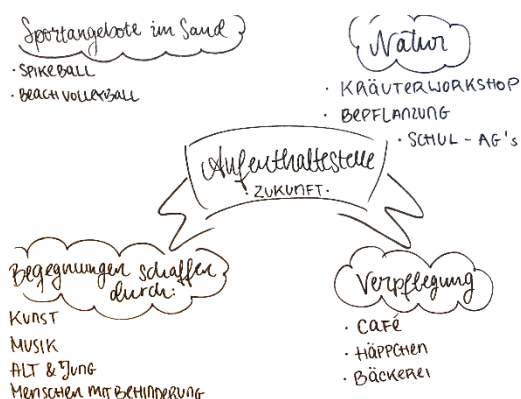 Sportangebote im Sand
· SPIKEBALL
· BEACHVOLLEYBALL
Natur
· KRÄUTERWORKSHOP
· BEPFLANZUNG
· SCHUL-AG's
Aufenthaltestelle
· ZUKUNFT ·
Begegnungen schaffen
durch:
KUNST
MUSIK
ALT & JUNG
MENSCHEN MIT BEHINDERUNG
Verpflegung
· CAFÉ
· HÄPPCHEN
· BÄCKEREI